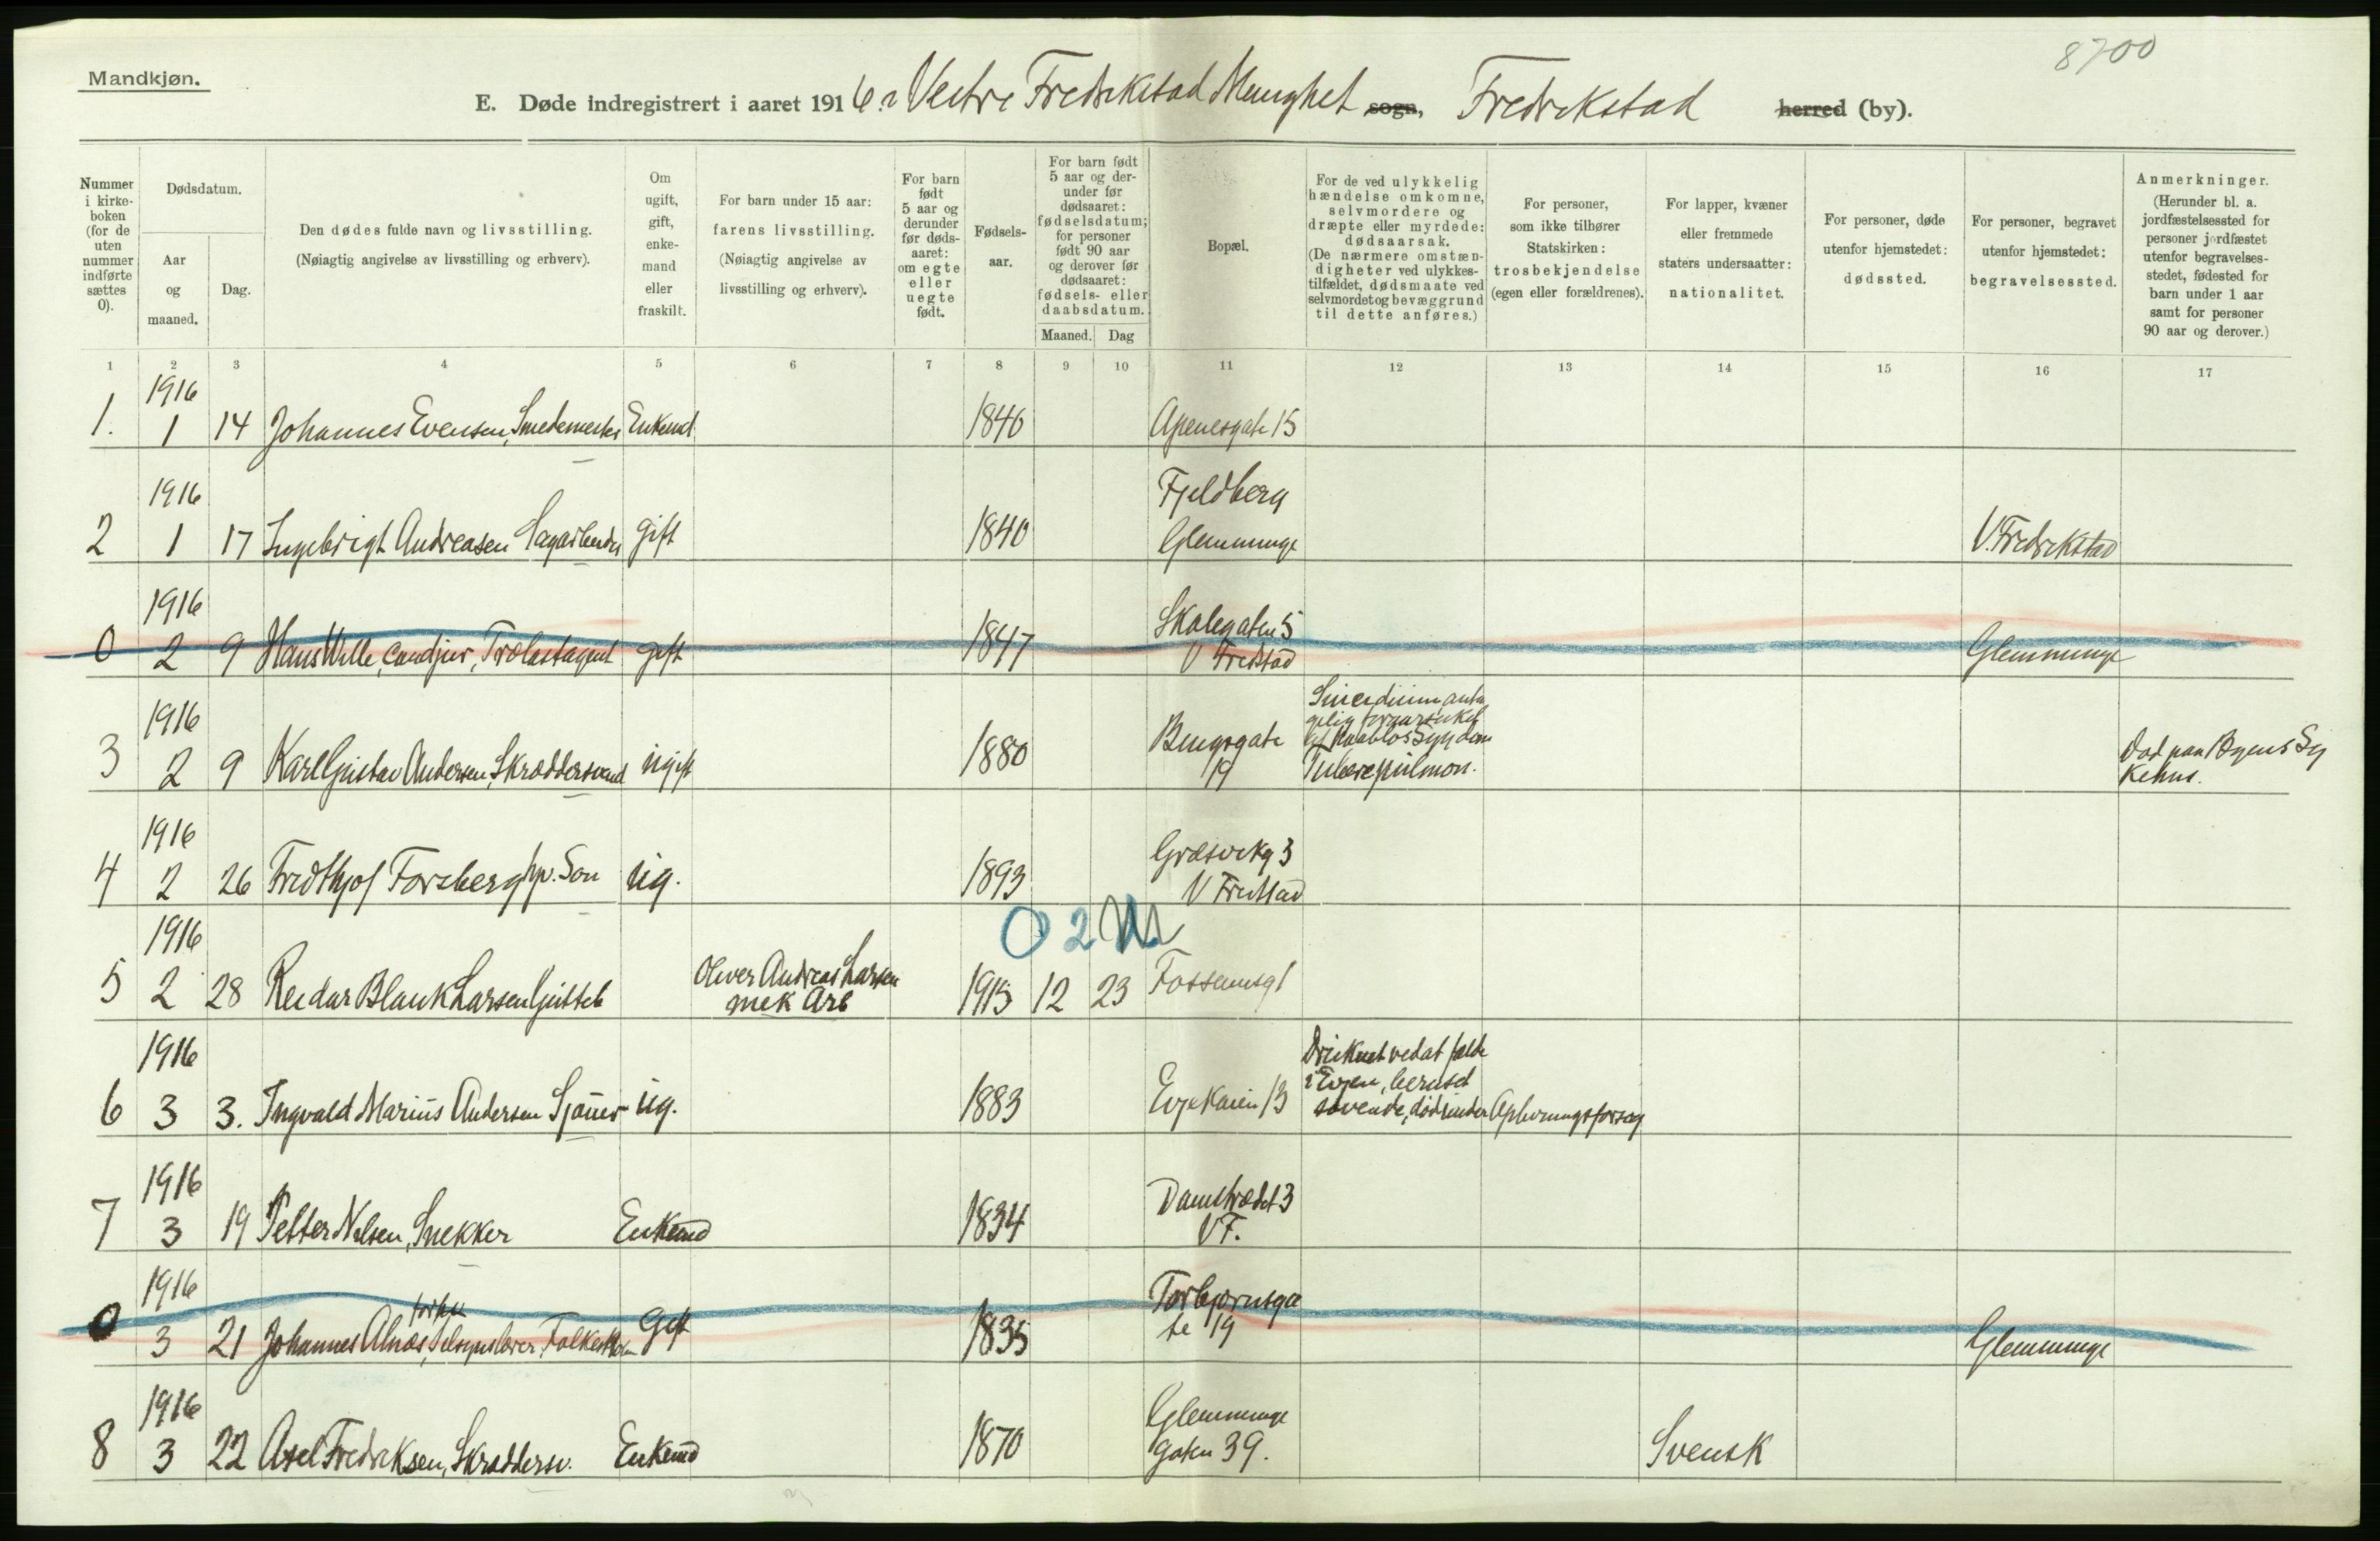 8700
Mandkjøn.
E. Døde indregistrert i aaret 1916 i Vestre Fredrikstad Menighet sogn, Fredrikstad herred (by).
Nummer i kirke-boken (for de uten nummer indførte sættes 0).
Dødsdatum.
Aar og maaned.
Dag.
Den dødes fulde navn og livsstilling.
(Nøiagtig angivelse av livsstilling og erhverv).
Om ugift, gift, enke-mand eller fraskilt.
For barn under 15 aar: farens livsstilling.
(Nøiagtig angivelse av livsstilling og erhverv).
For barn født 5 aar og derunder før døds-aaret: om egte eller uegte født.
Fødsels-aar.
For barn født 5 aar og der-under før dødsaaret: fødselsdatum; for personer født 90 aar og derover før dødsaaret: fødsels- eller daabsdatum.
Maaned. Dag
Bopæl.
For de ved ulykkelig hændelse omkomne, selvmordere og dræpte eller myrdede: dødsaarsak.
(De nærmere omstæn-digheter ved ulykkes-tilfældet, dødsmaate ved selvmordet og bevæggrund til dette anføres.)
For personer, som ikke tilhører Statskirken: trosbekjendelse (egen eller forældrenes).
For lapper, kvæner eller fremmede staters undersaatter: nationalitet.
For personer, døde utenfor hjemstedet: dødssted.
For personer, begravet utenfor hjemstedet: begravelsessted.
Anmerkninger.
(Herunder bl. a. jordfæstelsessted for personer jordfæstet utenfor begravelses-stedet, fødested for barn under 1 aar samt for personer 90 aar og derover.)
1 2 3 4 5 6 7 8 9 10 11 12 13 14 15 16 17
1916
1. 1 14 Johannes Evensen, Smedemester Enkemd 1846 Apenesgate 15
1916 Fjeldberg
2 1 17 Ingebrigt Andreasen Sagarbeider gift 1840 Glemminge V. Fredrikstad
1916 Skolegaten 5
0 2 9 Hans Wille, cand jur, Trælastagent gift 1847 V Frdstad Glemminge
1916
3 2 9 Karl Gustav Andersen, Skræddersvend ugift 1880 Brugsgate 19
Tuberc pulmon.
Død paa Byens Sykehus.
1916 Græsvikg 3
4 2 26 Fridthjof Forsberg hv. Søn ug. 1893 V Frdstad
0 2 M
1916 Oliver Andreas Larsen
5 2 28 Reidar Blank Larsen 1915 12 23
mek Arb
1916 Druknet ved at falde
6 3 3. Ingvald Marius Andersen Sjømr ug. 1883 Evjekaien 13 i Evjen, beruset
søvende, død under Oplivningsforsøg
1916 Damstrædet 3
7 3 19 Petter Nilsen, Snekker Enkemd 1834 V F.
1916 forhv. Torbjørnsga
0 3 21 Johannes Alnæs, Gift 1835 te 19 Glemminge
1916 Glemminge
8 3 22 Axel Fredriksen, Skræddersv. Enkemd 1870 gaten 39. Svensk